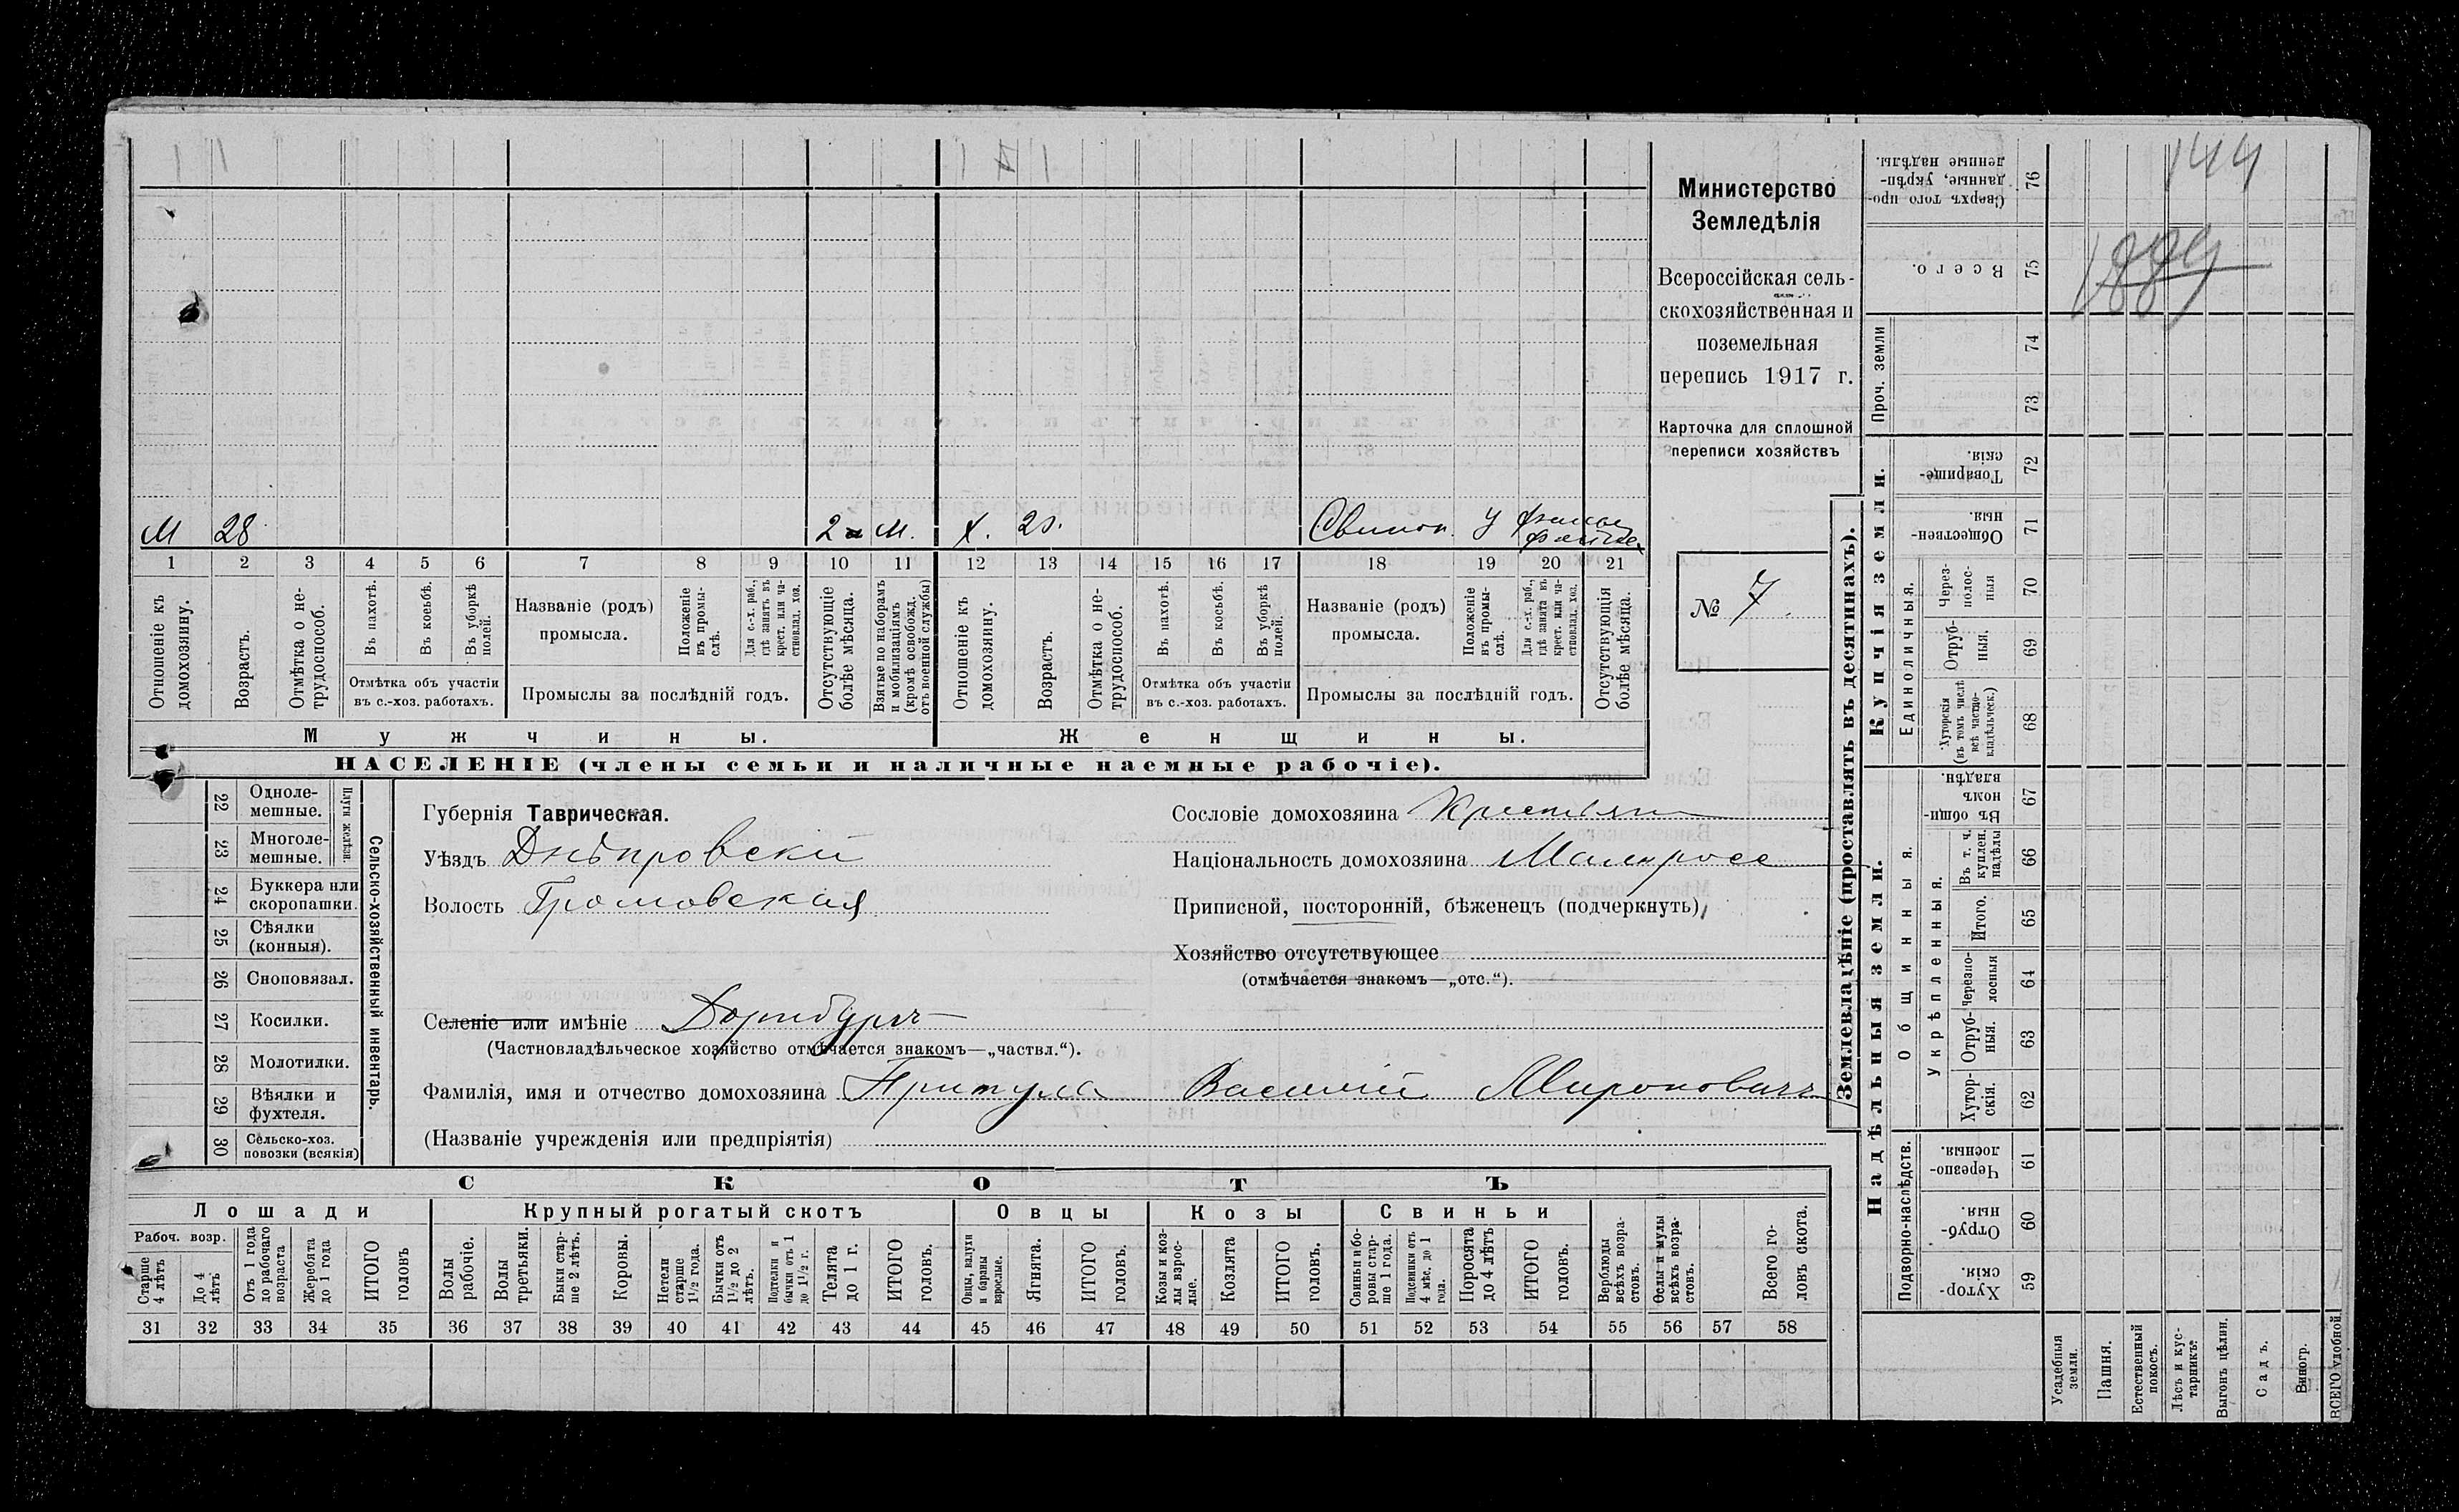 144
1889
Министерство
Земледѣлія
Всероссійская сель-
скохозяйственная и
поземельная
перепись 1917 г.
Карточка для сплошной
переписи хозяйствъ
№ 7.
М 28 2 м. х. 20. Свинон. У
1 2 3 4 5 6 7 8 9 10 11 12 13 14 15 16 17 18 19 20 21
Отношеніе къ домохозяину.
Возрастъ.
Отмѣтка о не-трудоспособ.
Въ пахотѣ.
Въ косьбѣ.
Въ уборкѣ полей.
Отмѣтка объ участіи
въ с.-хоз. работахъ.
Названіе (родъ)
промысла.
Положеніе въ промы-слѣ.
Для с.-х. раб., гдѣ занятъ въ крест. или ча-стновлад. хоз.
Промыслы за послѣдній годъ.
Отсутствующіе болѣе мѣсяца.
Взятые по наборамъ и мобилизаціямъ (кромѣ освобожд. отъ военной службы)
Отношеніе къ домохозяину.
Возрастъ.
Отмѣтка о не-трудоспособ.
Въ пахотѣ.
Въ косьбѣ.
Въ уборкѣ полей.
Отмѣтка объ участіи
въ с.-хоз. работахъ.
Названіе (родъ)
промысла.
Положеніе въ промы-слѣ.
Для с.-х. раб., гдѣ занята въ крест. или ча-стновлад. хоз.
Промыслы за послѣдній годъ.
Отсутствующія болѣе мѣсяца.
Мужчины. Женщины.
НАСЕЛЕНІЕ (члены семьи и наличные наемные рабочіе).
Сельско-хозяйственный инвентарь.
Плуги желѣзн.
22 Одноле-мешные.
23 Многоле-мешные.
24 Буккера или скоропашки.
25 Сѣялки (конныя).
26 Сноповязал.
27 Косилки.
28 Молотилки.
29 Вѣялки и фухтеля.
30 Сельско-хоз. повозки (всякія)
Губернія Таврическая.
Уѣздъ Днѣпровскій
Волость Громовская
Сословіе домохозяина Крестьян
Національность домохозяина Малоросс
Приписной, посторонній, бѣженецъ (подчеркнуть)
Хозяйство отсутствующее
(отмѣчается знакомъ—„отс.“).
Селеніе или имѣніе Дорнбургъ
(Частновладѣльческое хозяйство отмѣчается знакомъ—„частвл.“).
Фамилія, имя и отчество домохозяина Притула Василій Мироновичъ
(Названіе учрежденія или предпріятія)
СКОТЪ
Лошади Крупный рогатый скотъ Овцы Козы Свиньи
Рабоч. возр.
Старше 4 лѣтъ
До 4 лѣтъ
Отъ 1 года до рабочаго возраста
Жеребята до 1 года
ИТОГО головъ
Волы рабочіе.
Волы третьяки.
Быки стар-ше 2 лѣтъ.
Коровы.
Нетели старше 1½ года.
Бычки отъ 1½ до 2 лѣтъ.
Подтелки и бычки отъ 1 до 1½ г.
Телята до 1 г.
ИТОГО головъ.
Овцы, валухи и бараны взрослые.
Ягнята.
ИТОГО головъ.
Козы и коз-лы взрос-лые.
Козлята
ИТОГО головъ.
Свиньи и бо-ровы стар-ше 1 года.
Подсвинки отъ 4 мѣс. до 1 года.
Поросята до 4 лѣтъ
ИТОГО головъ.
Верблюды всѣхъ возра-стовъ.
Ослы и мулы всѣхъ возра-стовъ.
Всего го-ловъ скота.
31 32 33 34 35 36 37 38 39 40 41 42 43 44 45 46 47 48 49 50 51 52 53 54 55 56 57 58
Землевладѣніе (проставлять въ десятинахъ).
Купчія земли.
Надѣльныя земли.
Сверхъ того про-данные, укрѣп-ленные надѣлы. 76
Всего. 75
Проч. земли
74
73
Товарище-скія. 72
Обществен-ныя. 71
Единоличныя.
Через-полос-ныя 70
Отруб-ныя. 69
Хуторскія (въ томъ числѣ всѣ частно-владѣльческ.) 68
Общинныя.
Въ общи-номъ владѣн. 67
Укрѣпленныя.
Въ т. ч. куплен. надѣлы 66
Итого. 65
Черезпо-лосныя 64
Отруб-ныя. 63
Хутор-скія. 62
Подворно-наслѣдств.
Черезпо-лосныя. 61
Отруб-ныя. 60
Хутор-скія. 59
Усадебныя земли.
Пашня.
Естественный покосъ.
Лѣсъ и кус-тарникъ.
Выгонъ цѣлин.
Садъ.
Виногр.
ВСЕГО удобной.